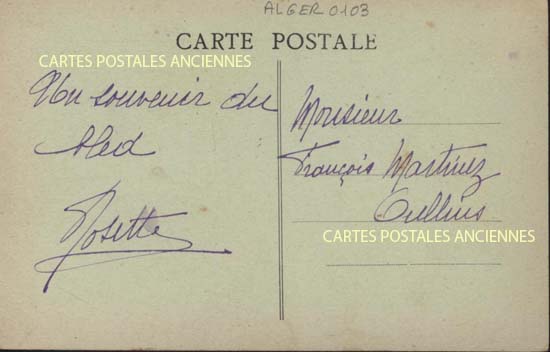 ALGER 0103
CARTE POSTALE
CARTES POSTALES ANCIENNES
Un souvenir du
bled
Rosette
Monsieur
François Martinez
Oullins
CARTES POSTALES ANCIENNES